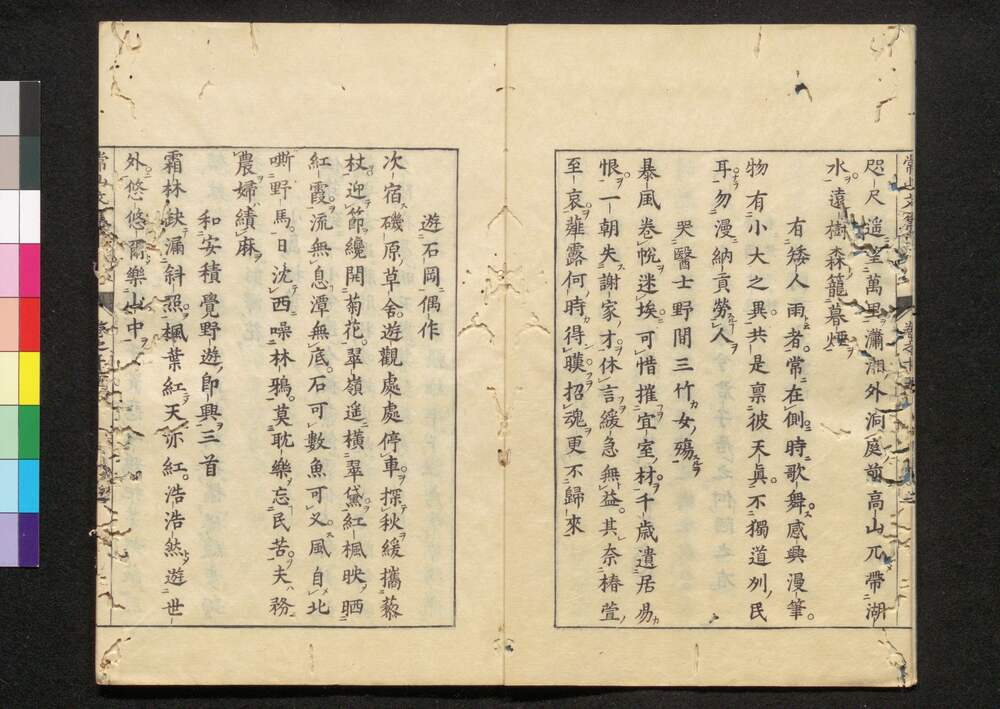 咫尺遥望萬里瀟湘外洞庭前高山兀帶湖
水遠樹森籠暮煙
有矮人雨者常在側時歌舞感興漫筆
物有小大之異共是禀彼天眞不獨道州民
耳勿漫納貢勞人
哭醫士野間三竹女殤
暴風卷帨迷埃可惜摧宜室材千歳遺居易
恨一朝失謝家才休言緩急無益其奈椿萱
至哀薤露何時得暵招魂更不歸來
遊石岡偶作
次宿磯原草舍遊觀處處停車探秋緩攜藜
杖迎節纔開菊花翠嶺遥橫翠黛紅楓映晒
紅霞流無息潭無底石可數魚可叉風自北
嘶野馬日沈西噪林鴉莫耽樂忘民苦夫務
農婦績麻
和安積覺野遊即興三首
霜林缺漏斜照楓葉紅天亦紅浩浩然遊世
外悠悠爾樂山中